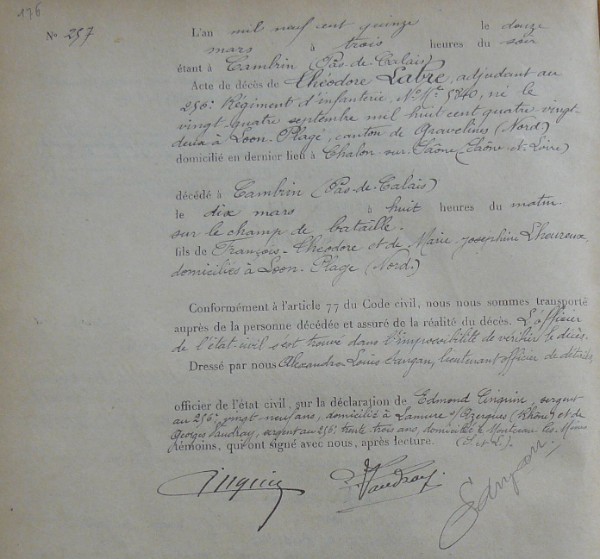 176
No 257
L'an mil neuf cent quinze le douze
mars à trois heures du soir
étant à Cambrin (Pas-de-Calais)
Acte de décès de Théodore Labre, adjudant au
256e Régiment d'infanterie, No Mle 5840, né le
vingt-quatre septembre mil huit cent quatre vingt-
deux à Loon-Plage, canton de Gravelines (Nord)
domicilié en dernier lieu à Chalon-sur-Saône (Saône-et-Loire)
décédé à Cambrin (Pas-de-Calais)
le dix mars à huit heures du matin
sur le champ de bataille.
fils de François-Théodore et de Marie-Joséphine Lheureux,
domiciliés à Loon-Plage (Nord.)
Conformément à l'article 77 du Code civil, nous nous sommes transporté
auprès de la personne décédée et assuré de la réalité du décès. L'officier
de l'état-civil s'est trouvé dans l'impossibilité de vérifier le décès.
Dressé par nous Alexandre Louis lieutenant officier de détails,
officier de l'état civil, sur la déclaration de Edmond sergent
au 256e vingt-neuf ans, domicilié à Lamure s/ Azergues (Rhône) et de
Georges Vaudray, sergent au 256e trente-trois ans, domicilié à Montceau-les-Mines
témoins, qui ont signé avec nous, après lecture. (S. et L.).
Vaudray